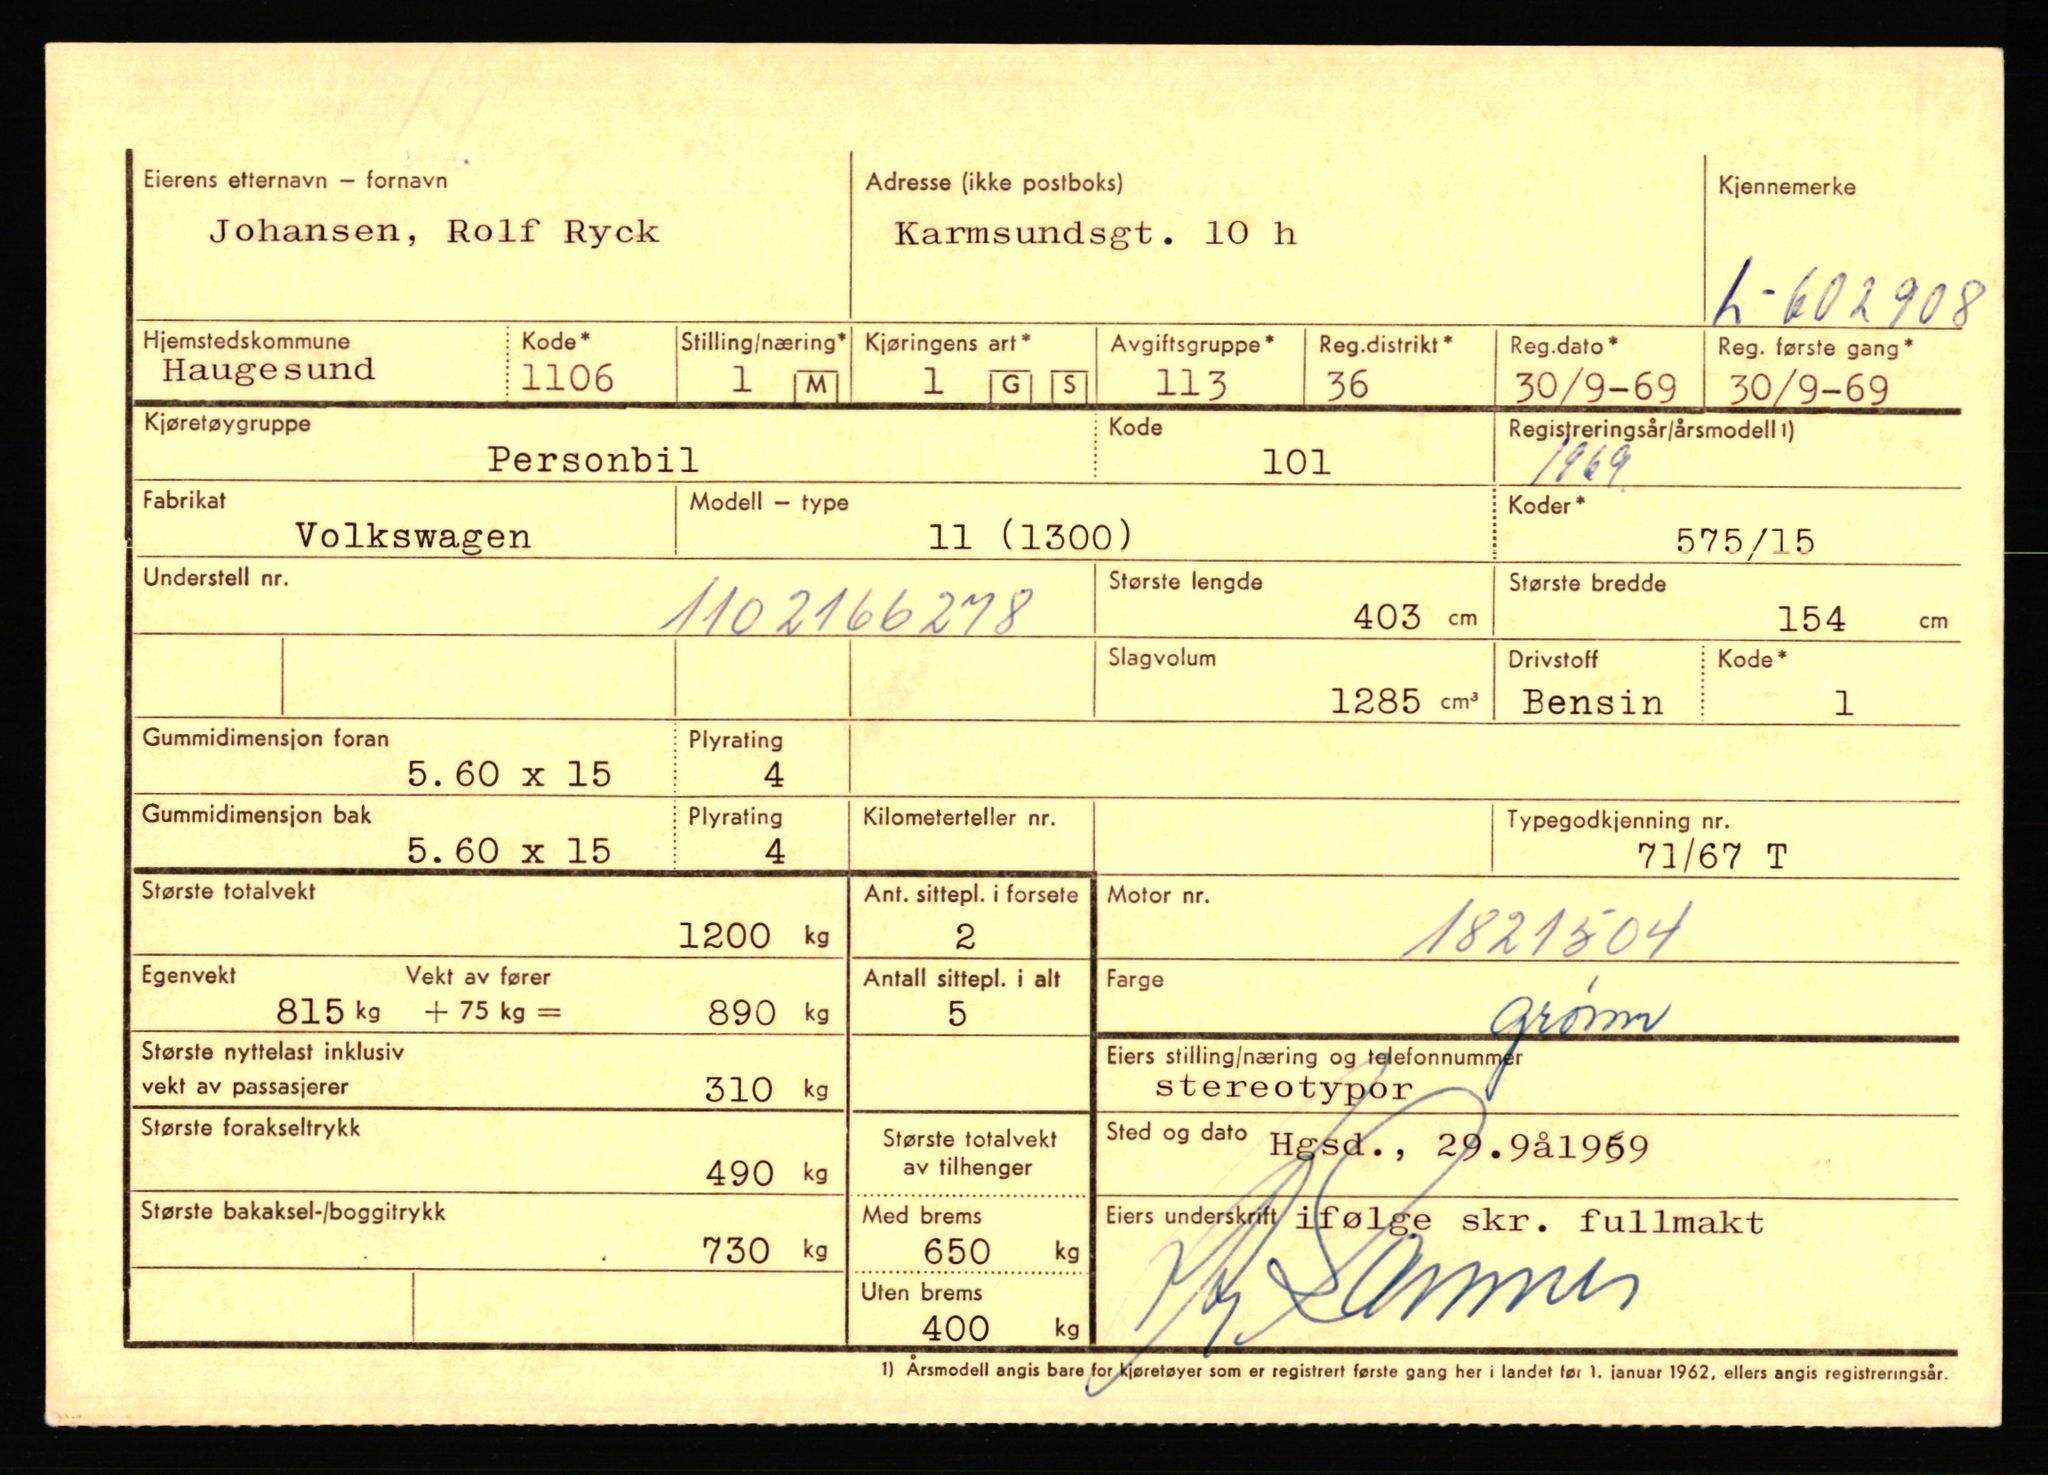 Eierens etternavn – fornavn
Johansen, Rolf Ryck
Adresse (ikke postboks)
Karmsundsgt. 10 h
Kjennemerke
L-602908
Hjemstedskommune
Haugesund
Kode*
1106
Stilling/næring*
1 M
Kjøringens art*
1 G S
Avgiftsgruppe*
113
Reg.distrikt*
36
Reg.dato*
30/9-69
Reg. første gang*
30/9-69
Kjøretøygruppe
Personbil
Kode
101
Registreringsår/årsmodell 1)
1969
Fabrikat
Volkswagen
Modell – type
11 (1300)
Koder*
575/15
Understell nr.
1102166278
Største lengde
403 cm
Største bredde
154 cm
Slagvolum
1285 cm³
Drivstoff
Bensin
Kode*
1
Gummidimensjon foran
5.60 x 15
Plyrating
4
Gummidimensjon bak
5.60 x 15
Plyrating
4
Kilometerteller nr.
Typegodkjenning nr.
71/67 T
Største totalvekt
1200 kg
Ant. sittepl. i forsete
2
Motor nr.
1821504
Egenvekt
815 kg
Vekt av fører
+ 75 kg =
890 kg
Antall sittepl. i alt
5
Farge
grønn
Største nyttelast inklusiv
vekt av passasjerer
310 kg
Eiers stilling/næring og telefonnummer
stereotypør
Største forakseltrykk
490 kg
Største totalvekt
av tilhenger
Sted og dato
Hgsd., 29.9å1969
Største bakaksel-/boggitrykk
730 kg
Med brems
650 kg
Eiers underskrift
ifølge skr. fullmakt
Uten brems
400 kg
1) Årsmodell angis bare for kjøretøyer som er registrert første gang her i landet før 1. januar 1962, ellers angis registreringsår.